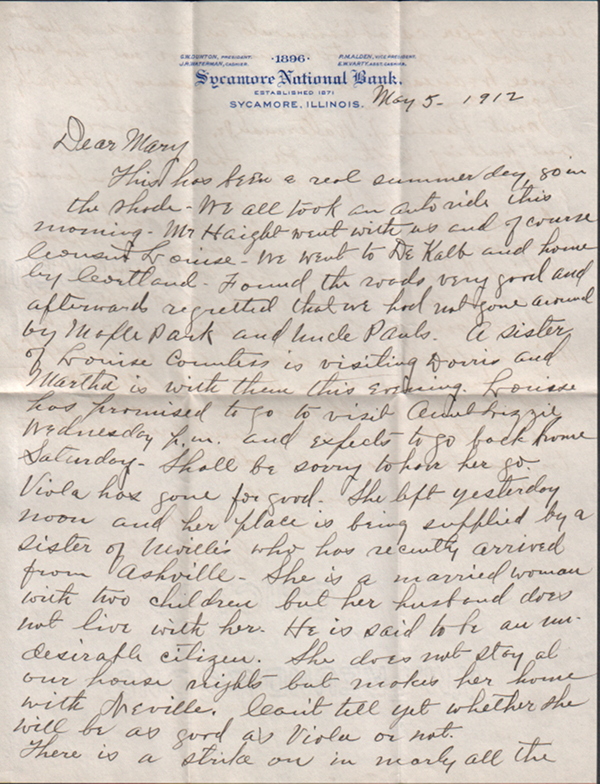 G.W. DUNTON, PRESIDENT. ·1896· P.M. ALDEN, VICE PRESIDENT.
J.R. WATERMAN, CASHIER. E.W. VARTY, ASST. CASHIER.
Sycamore National Bank.
ESTABLISHED 1871
SYCAMORE, ILLINOIS. May 5 - 1912
Dear Mary
This has been a real summer day, 90 in
the shade - We all took an auto ride this
morning - Mr Haight went with us and of course
Cousin Louise - We went to De Kalb and home
by Cortland - Found the roads very good and
afterwards regretted that we had not gone around
by Maple Park and Uncle Pauls. A sister
of Louise Countess is visiting Dorris and
Martha is with them this evening. Louise
has promised to go to visit Aunt Lizzie
Wednesday p.m. and expects to go back home
Saturday - Shall be sorry to have her go.
Viola has gone for good. She left yesterday
noon and her place is being supplied by a
sister of Nevilles who has recently arrived
from Ashville - She is a married woman
with two children but her husband does
not live with her. He is said to be an un-
desirable citizen. She does not stay at
our house nights but makes her home
with Neville. Can't tell yet whether she
will be as good as Viola or not.
There is a strike on in nearly all the